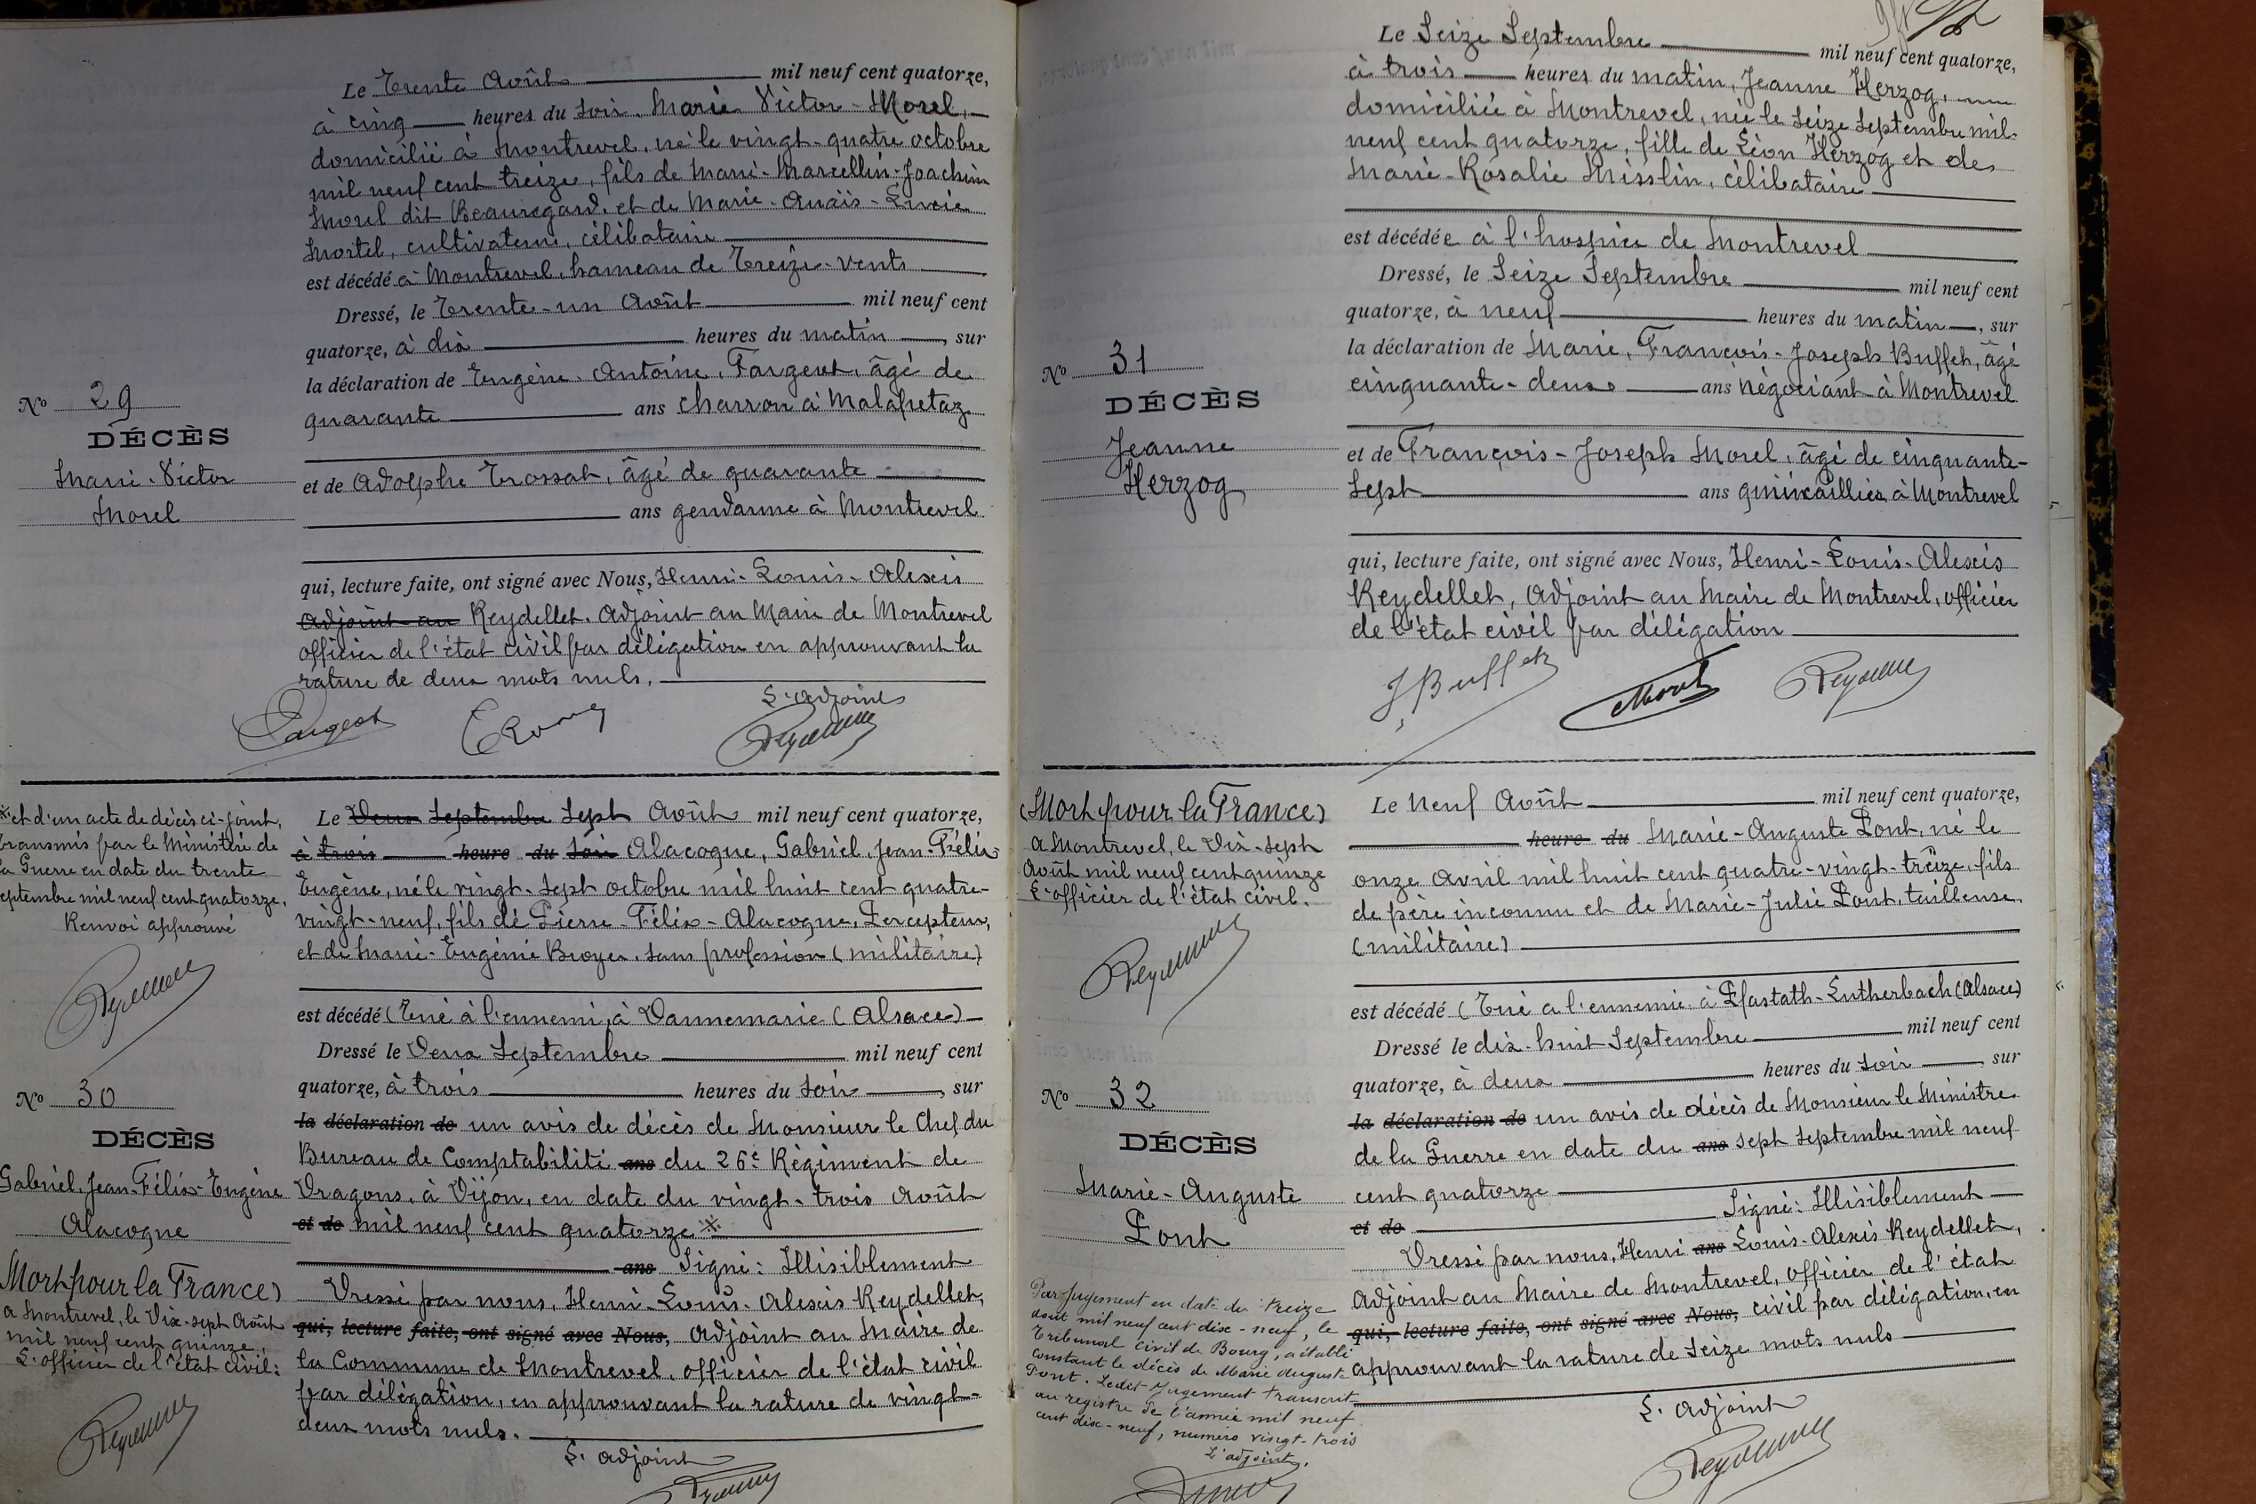 Le Trente Août mil neuf cent quatorze,
à cinq heures du soir, Marie Victor - Morel,
domicilié à Montrevel, né le vingt-quatre octobre
mil neuf cent treize, fils de Marie-Marcellin-Joachim
Morel dit Beauregard, et de Marie-Anaïs-Lucie
Mortel, cultivateurs, célibataire
est décédé à Montrevel, hameau de Treize-Vents
Dressé, le Trente-un Août mil neuf cent
quatorze, à dix heures du matin, sur
la déclaration de Eugène-Antoine, Fargeot, âgé de
quarante ans charron à Malafretaz
et de Adolphe Trossat, âgé de quarante
ans gendarme à Montrevel
qui, lecture faite, ont signé avec Nous, Henri-Louis-Alexis
Adjoint au Reydellet, Adjoint au Maire de Montrevel
officier de l'état civil par délégation en approuvant la
rature de deux mots nuls.
L'adjoint
Fargeot
Reydellet
Nº 29
DÉCÈS
Marie-Victor
Morel
※ et d'un acte de décès ci-joint,
transmis par le Ministère de
la Guerre en date du trente
septembre mil neuf cent quatorze.
Renvoi approuvé
Reydellet
Nº 30
DÉCÈS
Gabriel, Jean-Félix-Eugène
Alacogne
(Mort pour la France)
à Montrevel, le Dix-sept Août
mil neuf cent quinze.
L'officier de l'état civil:
Reydellet
Le Deux Septembre Sept Août mil neuf cent quatorze,
à trois heure du soir Alacogne, Gabriel, Jean-Félix
Eugène, né le vingt-sept octobre mil huit cent quatre-
vingt-neuf, fils de Pierre-Félix-Alacogne, Percepteur,
et de Marie-Eugénie Broyer, sans profession (militaire)
est décédé (Tué à l'ennemi, à Dannemarie (Alsace)
Dressé le Deux Septembre mil neuf cent
quatorze, à trois heures du soir, sur
la déclaration de un avis de décès de Monsieur le Chef du
Bureau de Comptabilité ans du 26e Régiment de
Dragons, à Dijon, en date du vingt-trois Août
et de mil neuf cent quatorze ※
ans Signé: Illisiblement
Dressé par nous, Henri-Louis-Alexis Reydellet,
qui, lecture faite, ont signé avec Nous, Adjoint au Maire de
la Commune de Montrevel, officier de l'état civil
par délégation, en approuvant la rature de vingt-
deux mots nuls.
L'adjoint
Reydellet
Le Seize Septembre mil neuf cent quatorze,
à trois heures du matin, Jeanne Herzog,
domiciliée à Montrevel, née le seize Septembre mil
neuf cent quatorze, fille de Léon Herzog et de
Marie-Rosalie Misslin, célibataire
est décédée à l'hospice de Montrevel
Dressé, le Seize Septembre mil neuf cent
quatorze, à neuf heures du matin, sur
la déclaration de Marie, François-Joseph Buffet, âgé
cinquante-deux ans négociant à Montrevel
et de François-Joseph Morel, âgé de cinquante-
sept ans quincaillier à Montrevel
qui, lecture faite, ont signé avec Nous, Henri-Louis-Alexis
Reydellet, Adjoint au Maire de Montrevel, officier
de l'état civil par délégation
J Buffet Morel Reydellet
Nº 31
DÉCÈS
Jeanne
Herzog
(Mort pour la France)
à Montrevel, le Dix-sept
Août mil neuf cent quinze
L'officier de l'état civil.
Reydellet
Nº 32
DÉCÈS
Marie-Auguste
Pont
Par jugement en date du treize
août mil neuf cent dix-neuf, le
Tribunal civil de Bourg, a établi
constant le décès de Marie Auguste
Pont. Ledit jugement transcrit
au registre de l'année mil neuf
cent dix-neuf, numéro vingt-trois
L'adjoint,
Le Neuf Août mil neuf cent quatorze,
heure du Marie-Auguste Pont, né le
onze avril mil huit cent quatre-vingt-treize, fils
de père inconnu et de Marie-Julie Pont, tailleuse.
(militaire)
est décédé (Tué à l'ennemi à Pfastath-Lutherbach (Alsace)
Dressé le dix-huit Septembre mil neuf cent
quatorze, à deux heures du soir, sur
la déclaration de un avis de décès de Monsieur le Ministre
de la Guerre en date du ans sept Septembre mil neuf
cent quatorze
et de Signé: Illisiblement
Dressé par nous, Henri ans Louis-Alexis Reydellet,
Adjoint au Maire de Montrevel, officier de l'état
qui, lecture faite, ont signé avec Nous, civil par délégation, en
approuvant la rature de seize mots nuls
L'adjoint
Reydellet